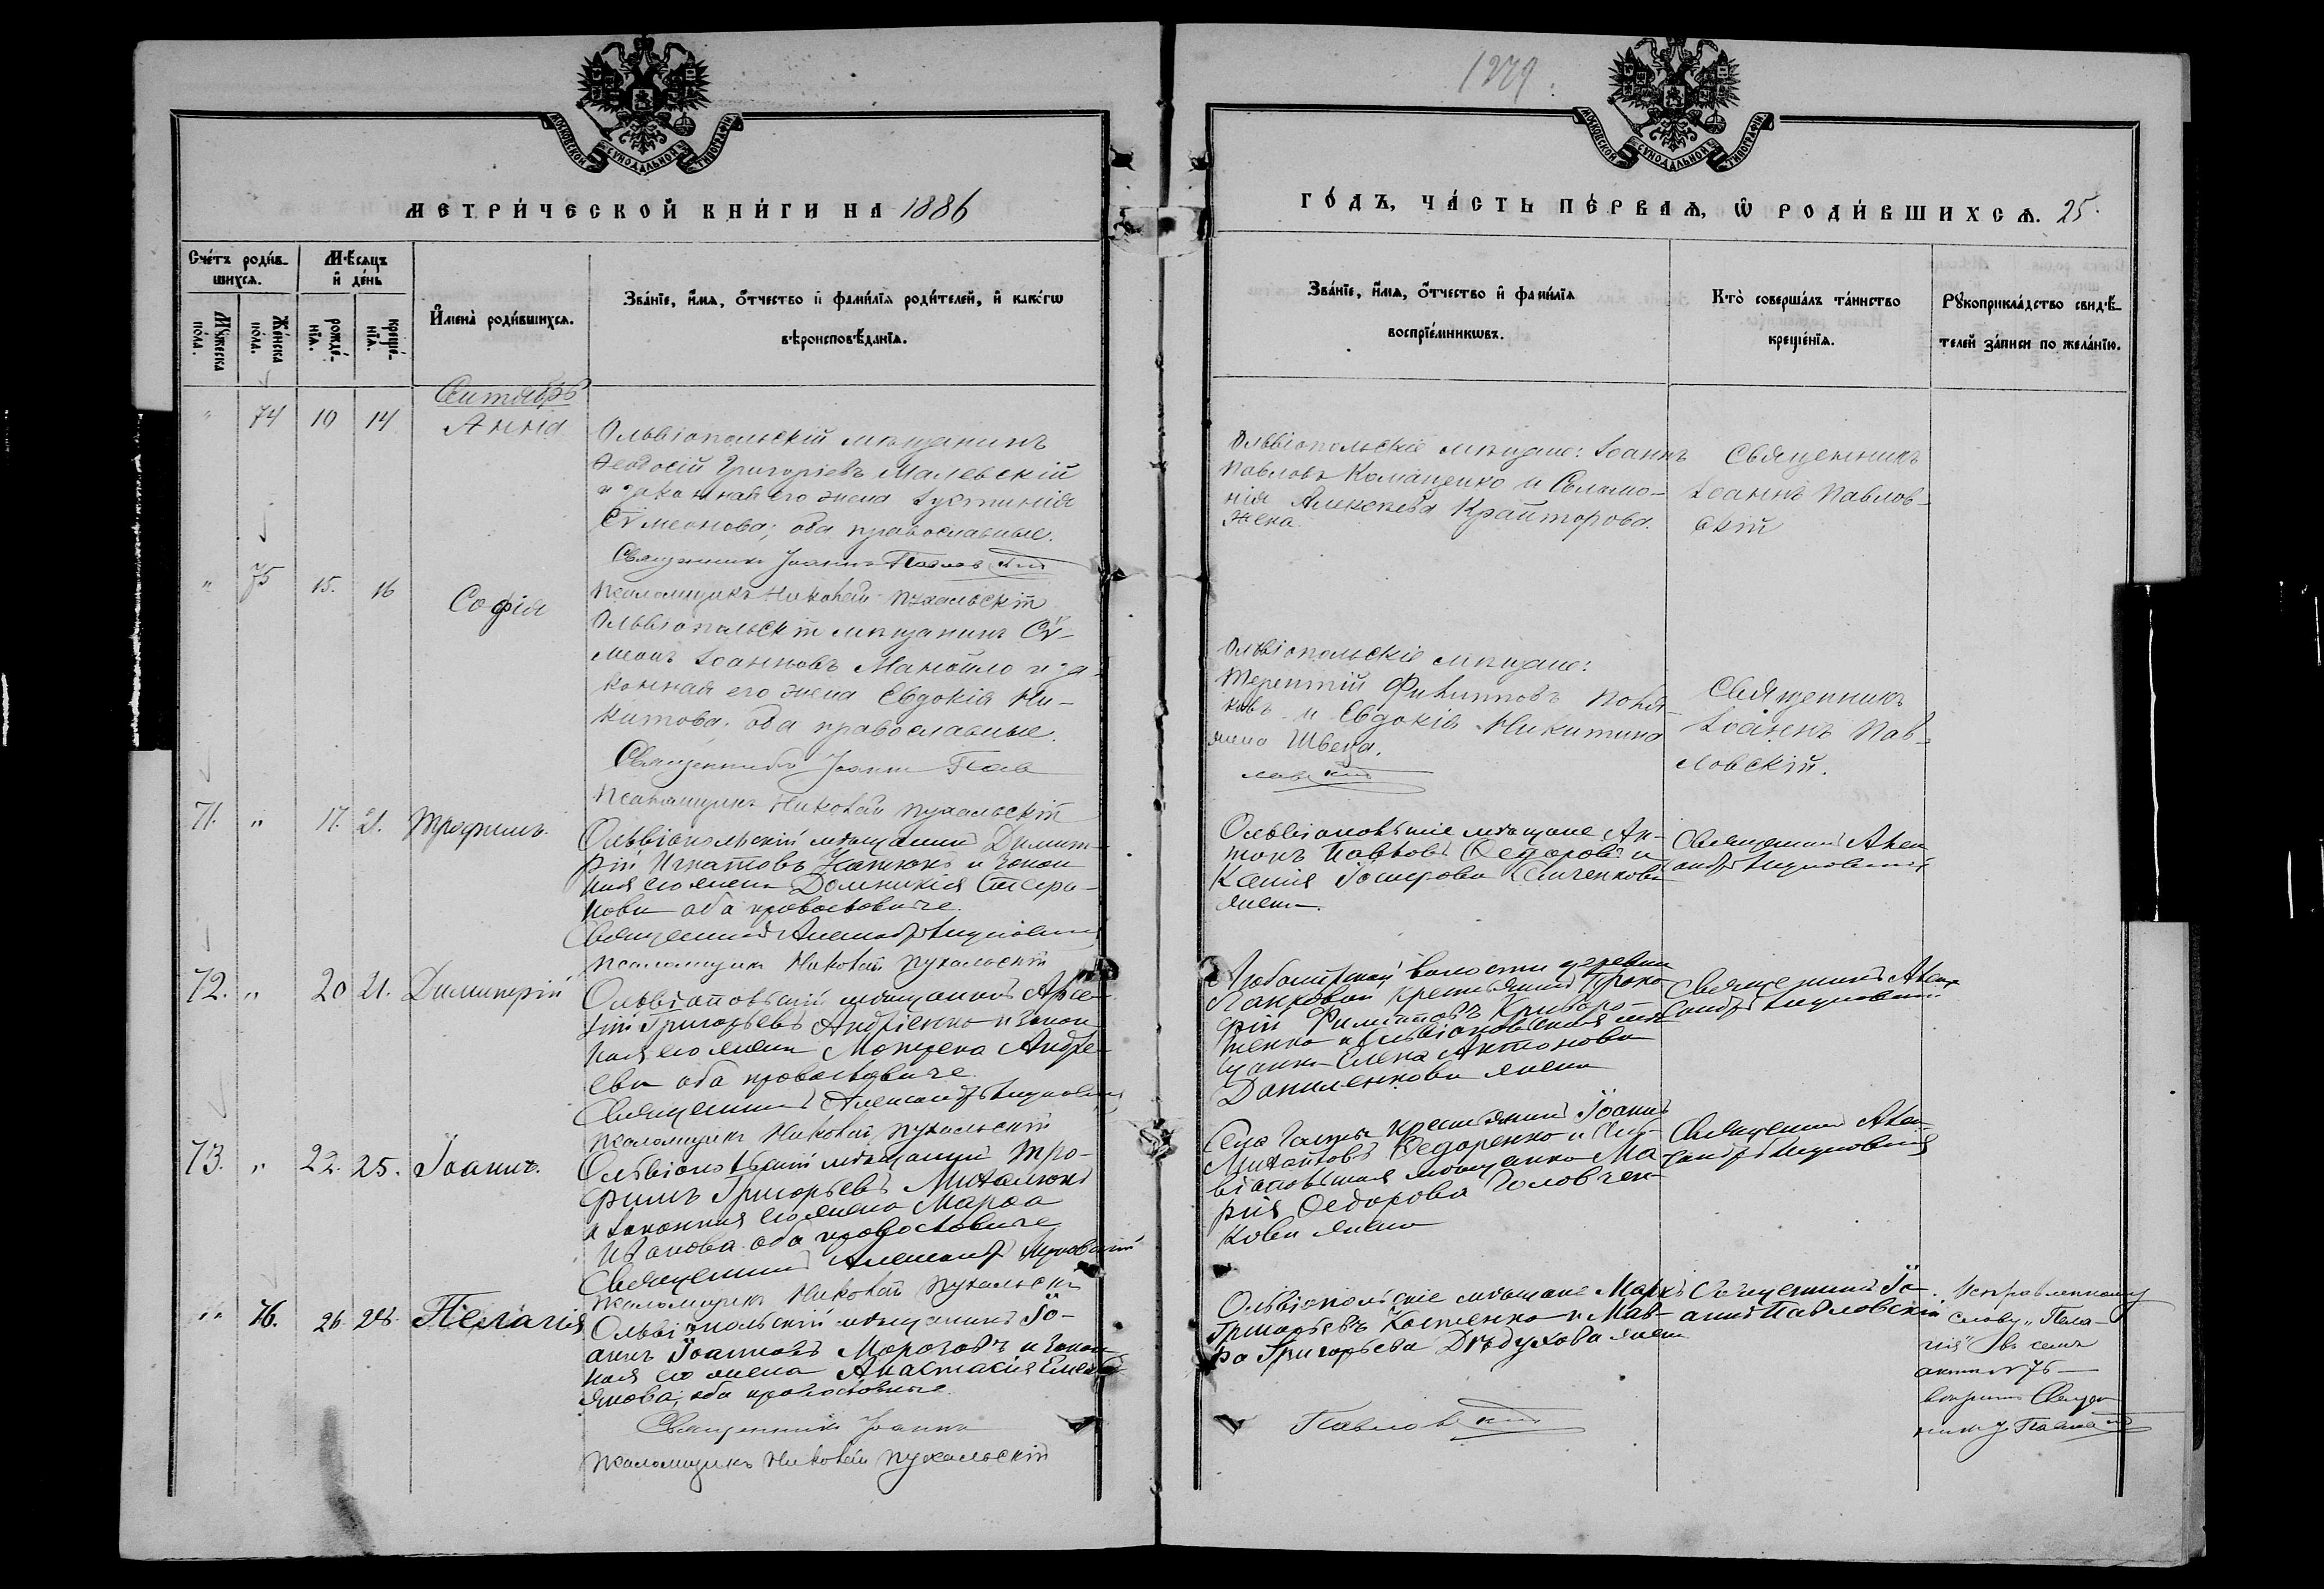 1229.
МОСКОВСКОЙ СѴНОДАЛЬНОЙ ТИПОГРАФІИ
МОСКОВСКОЙ СѴНОДАЛЬНОЙ ТИПОГРАФІИ
МЕТРИ́ЧЕСКОЙ КНИ́ГИ НА 1886
ГО́ДЪ, ЧА́СТЬ ПЕ́РВАѦ, Ѡ РОДИ́ВШИХСѦ. 25.
Сче́тъ роди́в-
шихсѧ.
Мѣ́сяцъ
и҆ де́нь
Мꙋ́жеска
по́ла.
Же́нска
по́ла.
рожде́-
нїѧ.
креще́-
нїѧ.
И҆мена̀ роди́вшихсѧ.
Зва́нїе, и҆́мѧ, ѻ҆́тчество и҆ фами́лїѧ роди́телей, и҆ како́гѡ
вѣроисповѣ́данїѧ.
Зва́нїе, и҆́мѧ, ѻ҆́тчество и҆ фами́лїѧ
воспрїе́мникѡвъ.
Кто̀ соверша́лъ та́инство
креще́нїѧ.
Рꙋкоприкла́дство свидѣ́-
телей за́писи по жела́нїю.
Сентябрь
" 74 10 14 Анна
Ольвіопольскій мѣщанинъ
Ѳеодосій Григоріевъ Малевскій
и законная его жена Іустинія
Сѵмеонова; оба православные.
Священникъ Іоаннъ Павловскій
Псаломщикъ Николай Пухальскій
Ольвіопольскіе мѣщане: Іоаннъ
Павловъ Комащенко и Соломо-
нія Алексѣева Крайторова
жена.
Священникъ
Іоаннъ Павлов-
скій
" 75 15. 16 Софія
Ольвіопольскій мѣщанинъ Сѵ-
меонъ Іоанновъ Манойло и за-
конная его жена Евдокія Ни-
китова; оба православные.
Священникъ Іоаннъ Пав
Псаломщикъ Николай Пухальскій
Ольвіопольскіе мѣщане:
Терентій Филипповъ
и Евдокія Никитина
Швеца.
ловскій
Священникъ
Іоаннъ Пав-
ловскій.
71. " 17. 21. Трофимъ.
Ольвіопольскій мѣщанинъ Димит-
рій Игнатовъ и закон-
ная его жена Домникія Стефа-
нова оба православные.
Священникъ Александръ
Псаломщикъ Николай Пухальскій
Ольвіопольскіе мѣщане Ан-
тонъ Павловъ Ѳедоровъ и
Ксенія Іосифова
жена.
Священникъ Алек-
сандръ
72. " 20 21. Димитрій
Ольвіопольскій мѣщанинъ Арсе-
ній Григорьевъ Андріенко и закон-
ная его жена Мотрена Андре-
ева оба православные.
Священникъ Александръ
Псаломщикъ Николай Пухальскій
волости деревни
крестьянинъ Проко-
фій Филипповъ Криворо-
тенко и Ольвіопольская мѣ-
щанка Елена Антонова
Даниленкова жена
Священникъ Алек-
сандръ
73. " 22. 25. Іоаннъ.
Ольвіопольскій мѣщанинъ Тро-
фимъ Григорьевъ Михалюкъ
и законная его жена Марѳа
Иванова оба православные
Священникъ Александръ
Псаломщикъ Николай Пухальскій
Села крестьянинъ Іоаннъ
Михайловъ Ѳедоренко и Оль-
віопольская мѣщанка Ма-
рія Ѳедорова Головчен-
кова жена
Священникъ Алек-
сандръ
" 76. 26. 28. Пелагія
Ольвіопольскій мѣщанинъ Іо-
аннъ Іоанновъ Морозовъ и закон-
ная его жена Анастасія Емель-
янова; оба православные.
Священникъ Іоаннъ
Псаломщикъ Николай Пухальскій
Ольвіопольскіе мѣщане Маркъ
Григорьевъ Костенко и Мав-
ра Григорьева Дѣдухова жена
Павловскій
Священникъ Іо-
аннъ Павловскій
Исправленному
слову „Пела-
гія" въ семъ
актѣ № 76
вѣрить Священ-
никъ І. Павловскій